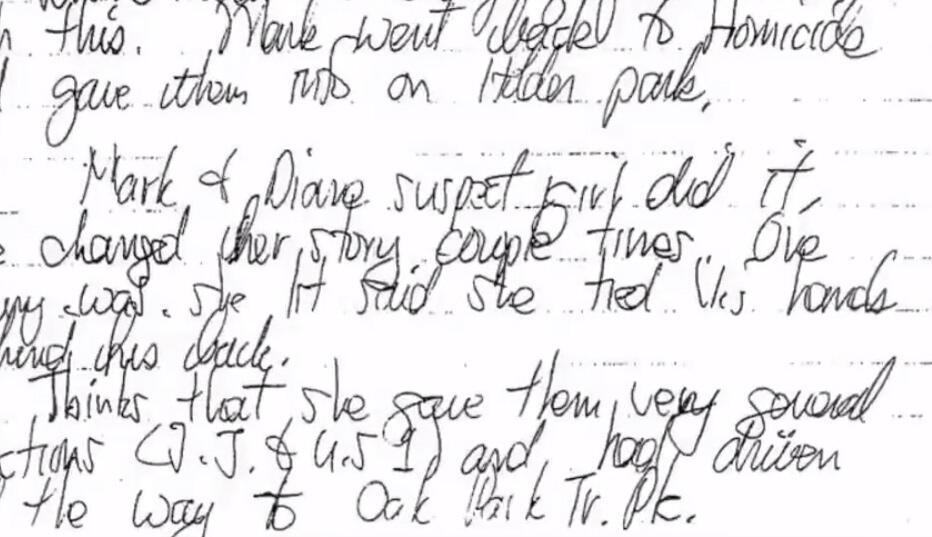 this. Mark went back to Homicide
gave them info on Holden park.
Mark & Diane suspect girl did it,
changed her story couple times. One
was. she 1st said she tied Vic's hands
his back.
Thinks that she gave them very general
(J.J. & U.S 1) and had driven
the way to Oak Park Tr. Pk.